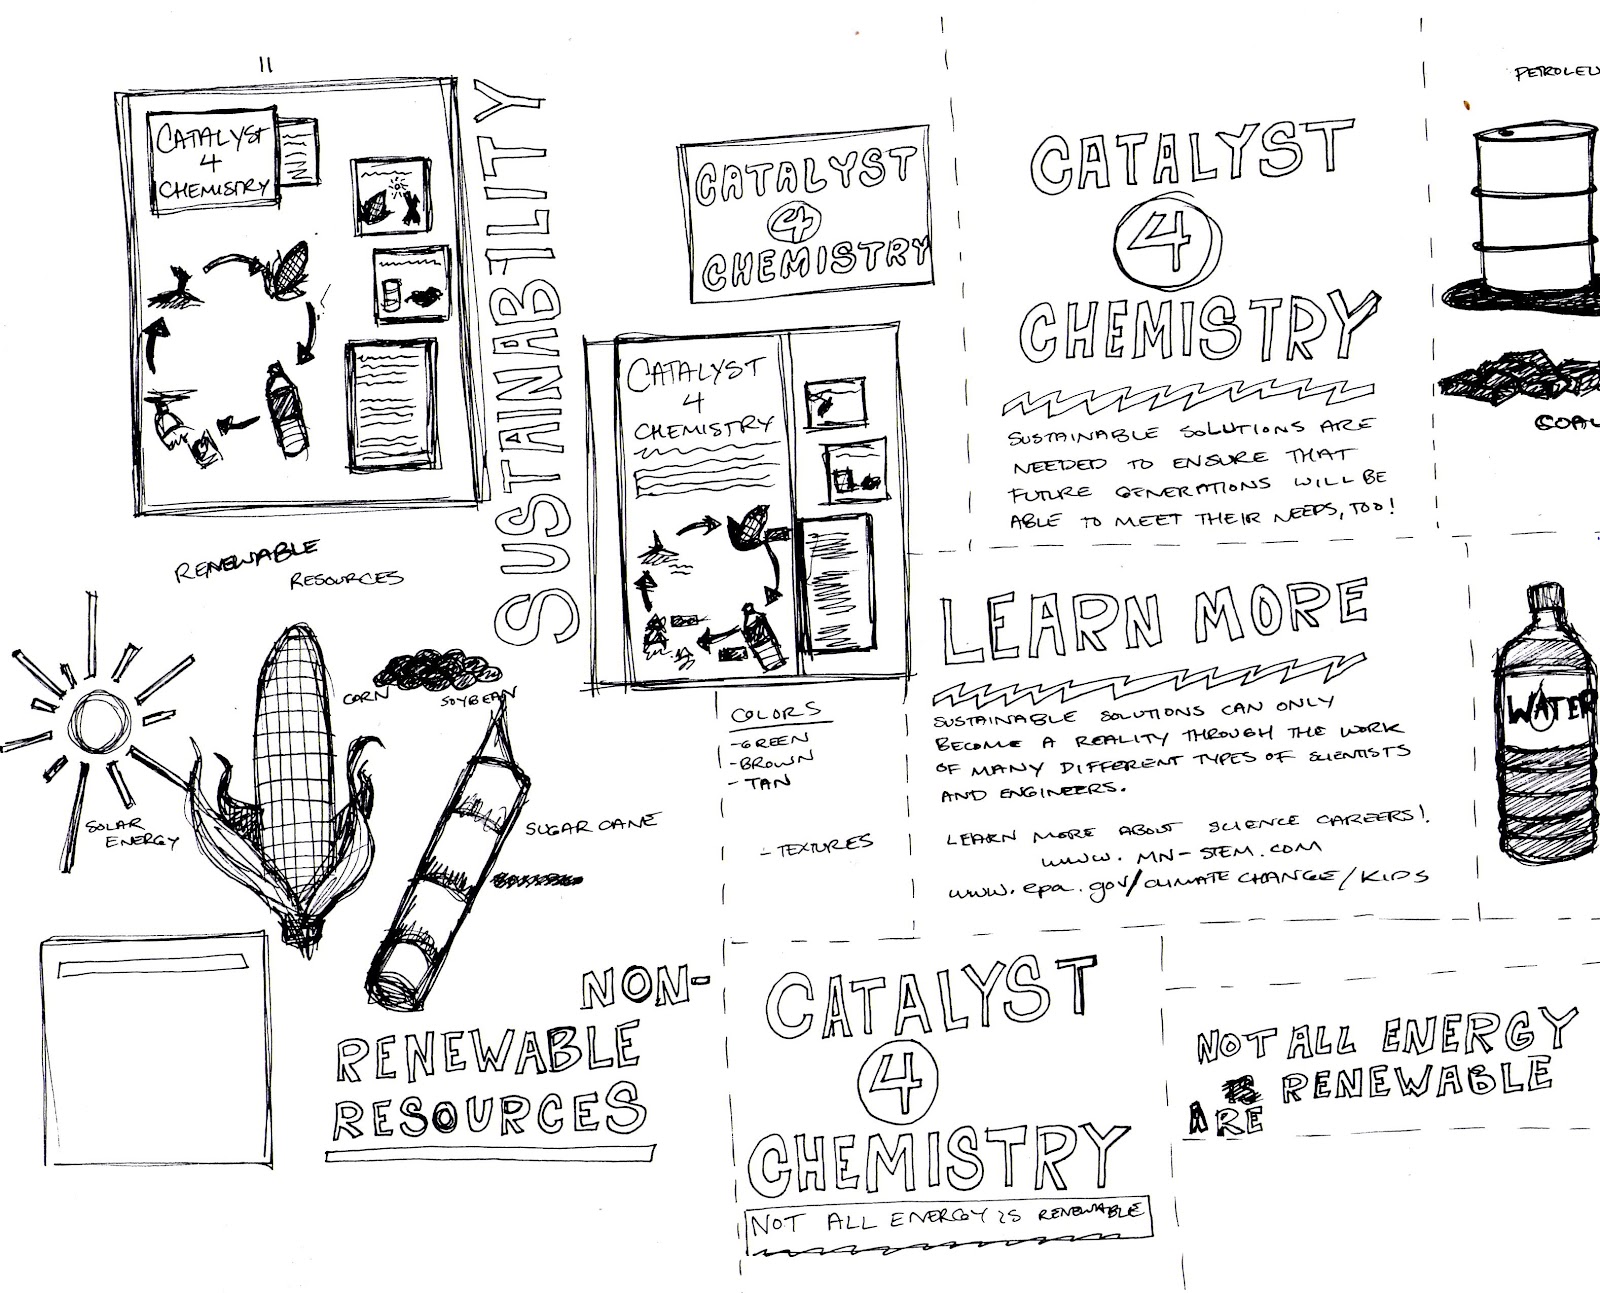 CATALYST
4
CHEMISTRY
SUSTAINABILITY
CATALYST
4
CHEMISTRY
CATALYST
4
CHEMISTRY
RENEWABLE
RESOURCES
SOLAR
ENERGY
CORN
SOYBEAN
SUGAR CANE
NON-
RENEWABLE
RESOURCES
COLORS
-GREEN
-BROWN
- TAN
- TEXTURES
CATALYST
4
CHEMISTRY
SUSTAINABLE SOLUTIONS ARE
NEEDED TO ENSURE THAT
FUTURE GENERATIONS WILL BE
ABLE TO MEET THEIR NEEDS, TOO!
PETROLEU
COAL
LEARN MORE
SUSTAINABLE SOLUTIONS CAN ONLY
BECOME A REALITY THROUGH THE WORK
OF MANY DIFFERENT TYPES OF SCIENTISTS
AND ENGINEERS.
LEARN MORE ABOUT SCIENCE CAREERS!
www. MN-STEM.COM
www.epa.gov/CLIMATE CHANGE/KIDS
WATER
CATALYST
4
CHEMISTRY
NOT ALL ENERGY IS RENEWABLE
NOT ALL ENERGY
RENEWABLE
ARE